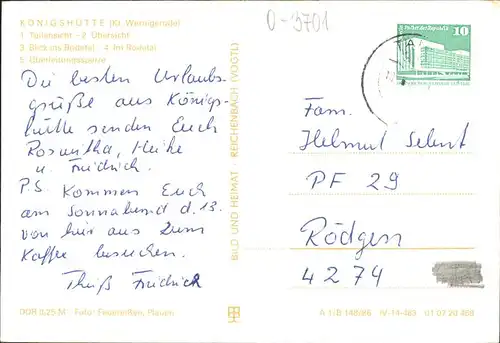 KÖNIGSHÜTTE (Kr. Wernigerode)
1 Teilansicht - 2 Übersicht
3 Blick ins Bodetal 4 Im
5 Überleitungssperre
Die besten Urlaubs-
grüße aus Königs-
hütte senden Euch
Roswitha, Heike
u. Friedrich.
P.S. Kommen Euch
am Sonnabend d. 13.
von hier aus zum
Kaffee besuchen.
Friedrich
DDR 0,25 M Foto: Feuereißen, Plauen
BILD UND HEIMAT REICHENBACH (VOGTL)
0-3701
10
Fam.
Helmut
PF 29
Rödgen
4274
A 1/B 148/86 IV-14-483 01 07 20 488